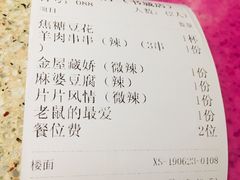 号: 088
人数: (2人)
项目 数量
焦糖豆花 1杯
羊肉串串（辣）（3串
） 1份
金屋藏娇（微辣） 1份
麻婆豆腐（辣） 1份
片片风情（微辣） 1份
老鼠的最爱 1份
餐位费 2位
楼面 XS-190623-0108